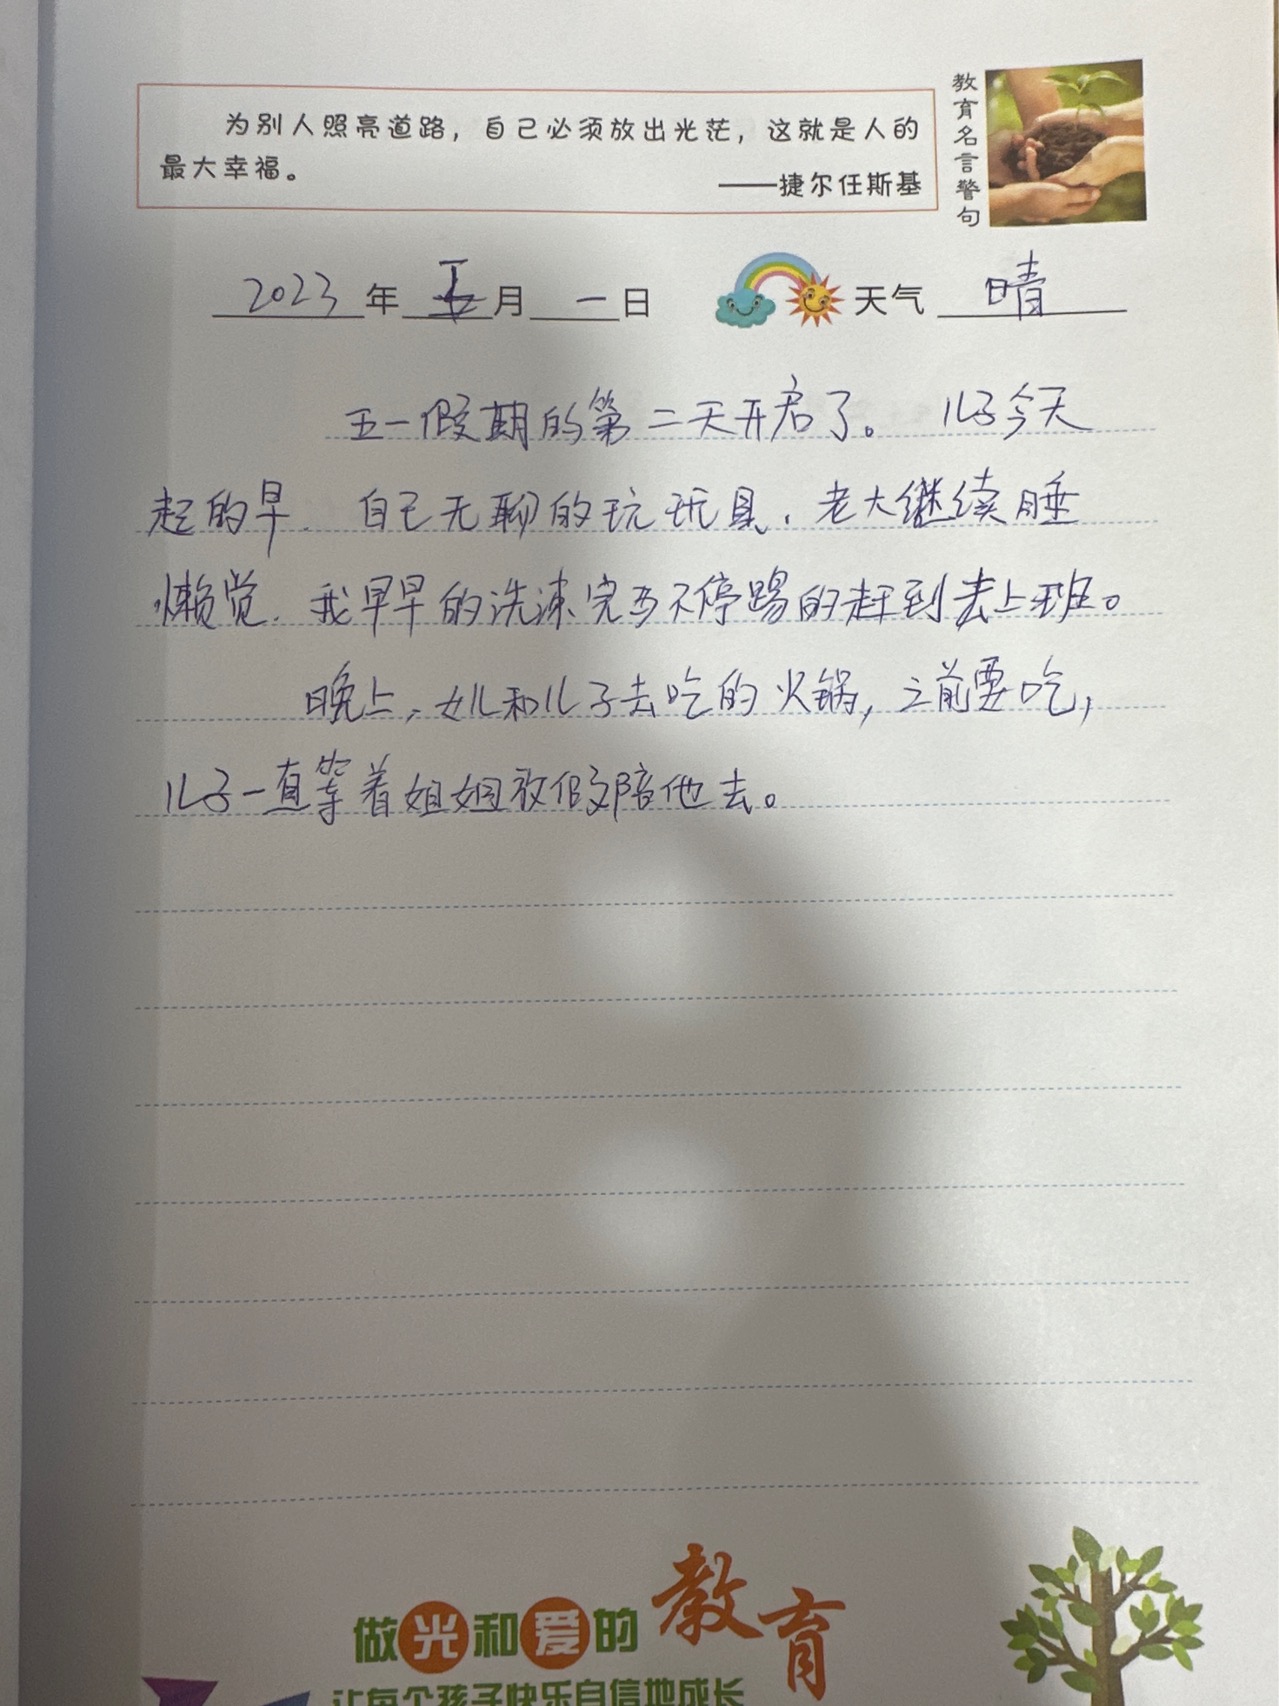 为别人照亮道路，自己必须放出光茫，这就是人的
最大幸福。
——捷尔任斯基
教育名言警句
2023年五月一日 天气 晴
五一假期的第二天开启了。儿子今天
起的早．自己无聊的玩玩具．老大继续睡
懒觉．我早早的洗漱完马不停蹄的赶到去上班。
晚上，女儿和儿子去吃的火锅，之前要吃，
儿子一直等着姐姐放假陪他去。
做光和爱的教育
让每个孩子快乐自信地成长